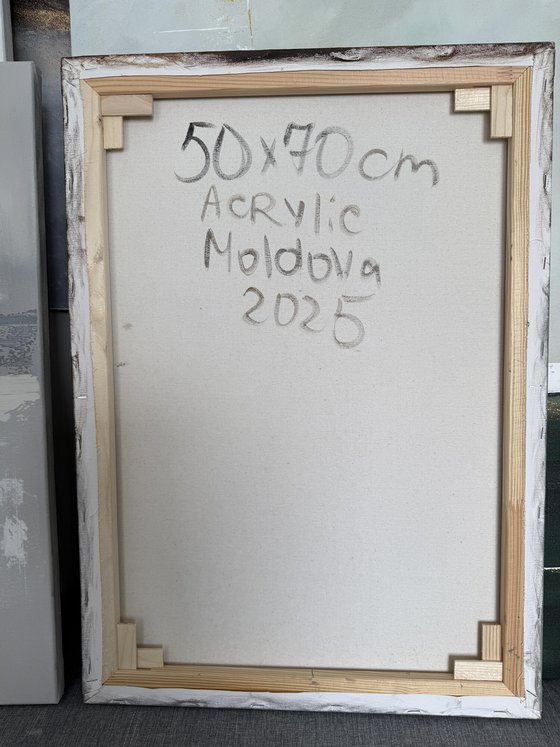 50x70cm
Acrylic
Moldova
2025